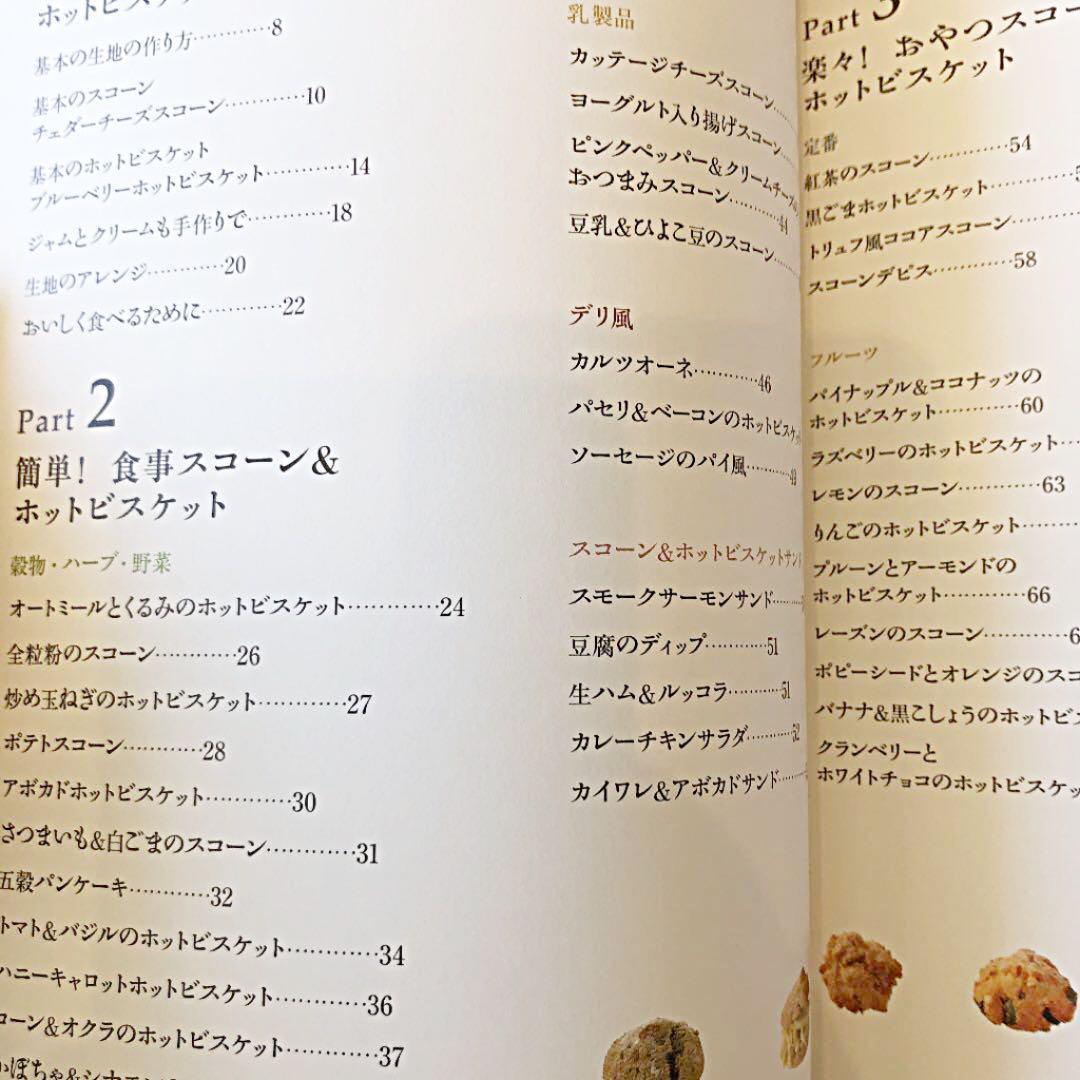 ホットビスケット
基本の生地の作り方…………8
基本のスコーン
チェダーチーズスコーン…………10
基本のホットビスケット
ブルーベリーホットビスケット…………14
ジャムとクリームも手作りで…………18
生地のアレンジ…………20
おいしく食べるために…………22
Part 2
簡単！ 食事スコーン&
ホットビスケット
穀物・ハーブ・野菜
オートミールとくるみのホットビスケット…………24
全粒粉のスコーン…………26
炒め玉ねぎのホットビスケット…………27
ポテトスコーン…………28
アボカドホットビスケット…………30
さつまいも&白ごまのスコーン…………31
五穀パンケーキ…………32
トマト&バジルのホットビスケット…………34
ハニーキャロットホットビスケット…………36
コーン&オクラのホットビスケット…………37
乳製品
カッテージチーズスコーン…
ヨーグルト入り揚げスコーン…
ピンクペッパー&クリームチーズの
おつまみスコーン…………44
豆乳&ひよこ豆のスコーン…
デリ風
カルツオーネ…………46
パセリ&ベーコンのホットビスケット
ソーセージのパイ風…………49
スコーン&ホットビスケットサンド
スモークサーモンサンド…
豆腐のディップ…………51
生ハム&ルッコラ…………51
カレーチキンサラダ…………52
カイワレ&アボカドサンド…
Part 3
楽々！ おやつスコー
ホットビスケット
定番
紅茶のスコーン…………54
黒ごまホットビスケット…………5
トリュフ風ココアスコーン…………
スコーンデピス…………58
フルーツ
パイナップル&ココナッツの
ホットビスケット…………60
ラズベリーのホットビスケット…
レモンのスコーン…………63
りんごのホットビスケット…………
プルーンとアーモンドの
ホットビスケット…………66
レーズンのスコーン…………6
ポピーシードとオレンジのスコ
バナナ&黒こしょうのホットビス
クランベリーと
ホワイトチョコのホットビスケッ